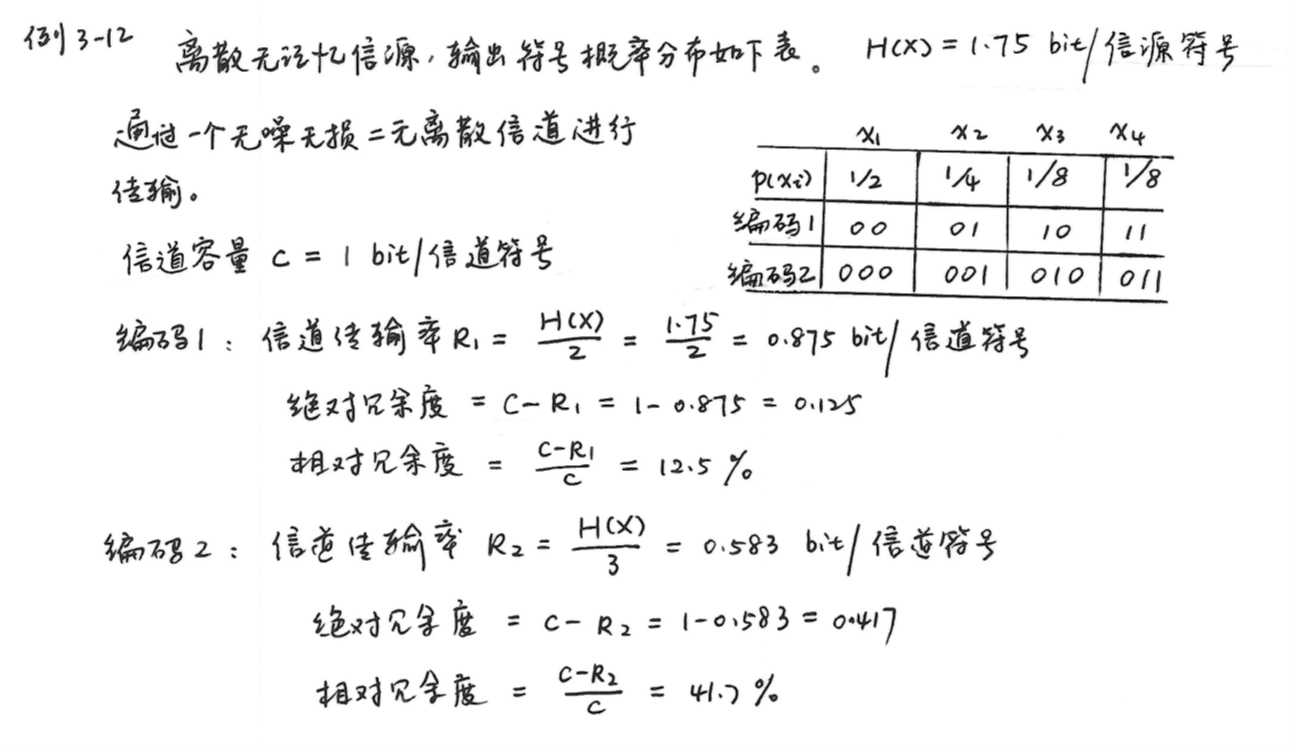 例3-12 离散无记忆信源,输出符号概率分布如下表。 H(X) = 1.75 bit/信源符号
通过一个无噪无损二元离散信道进行
传输。
信道容量 C = 1 bit/信道符号
x1 x2 x3 x4
P(xi) 1/2 1/4 1/8 1/8
编码1 00 01 10 11
编码2 000 001 010 011
编码1: 信道传输率 R1 = H(X)/2 = 1.75/2 = 0.875 bit/信道符号
绝对冗余度 = C-R1 = 1-0.875 = 0.125
相对冗余度 = (C-R1)/C = 12.5%
编码2: 信道传输率 R2 = H(X)/3 = 0.583 bit/信道符号
绝对冗余度 = C-R2 = 1-0.583 = 0.417
相对冗余度 = (C-R2)/C = 41.7%